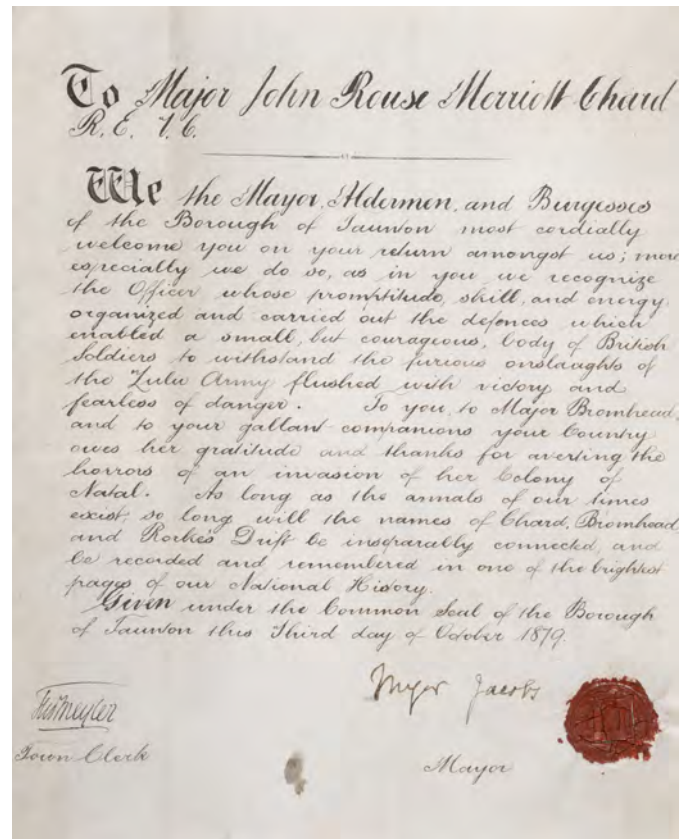 To Major John Rouse Merriott Chard
R. E. V. C.
We the Mayor, Aldermen, and Burgesses
of the Borough of Taunton most cordially
welcome you on your return amongst us; more
especially we do so, as in you we recognize
the Officer whose promptitude, skill, and energy,
organized and carried out the defences which
enabled a small, but courageous, body of British
Soldiers to withstand the furious onslaughts of
the Zulu Army flushed with victory and
fearless of danger. To you, to Major Bromhead,
and to your gallant companions your Country
owes her gratitude and thanks for averting the
horrors of an invasion of her Colony of
Natal. As long as the annals of our times
exist, so long will the names of Chard, Bromhead
and Rorke's Drift be inseparably connected, and
be recorded and remembered in one of the brightest
pages of our National History.
Given under the Common Seal of the Borough
of Taunton this Third day of October 1879.
Myer Jacobs
Town Clerk
Mayor